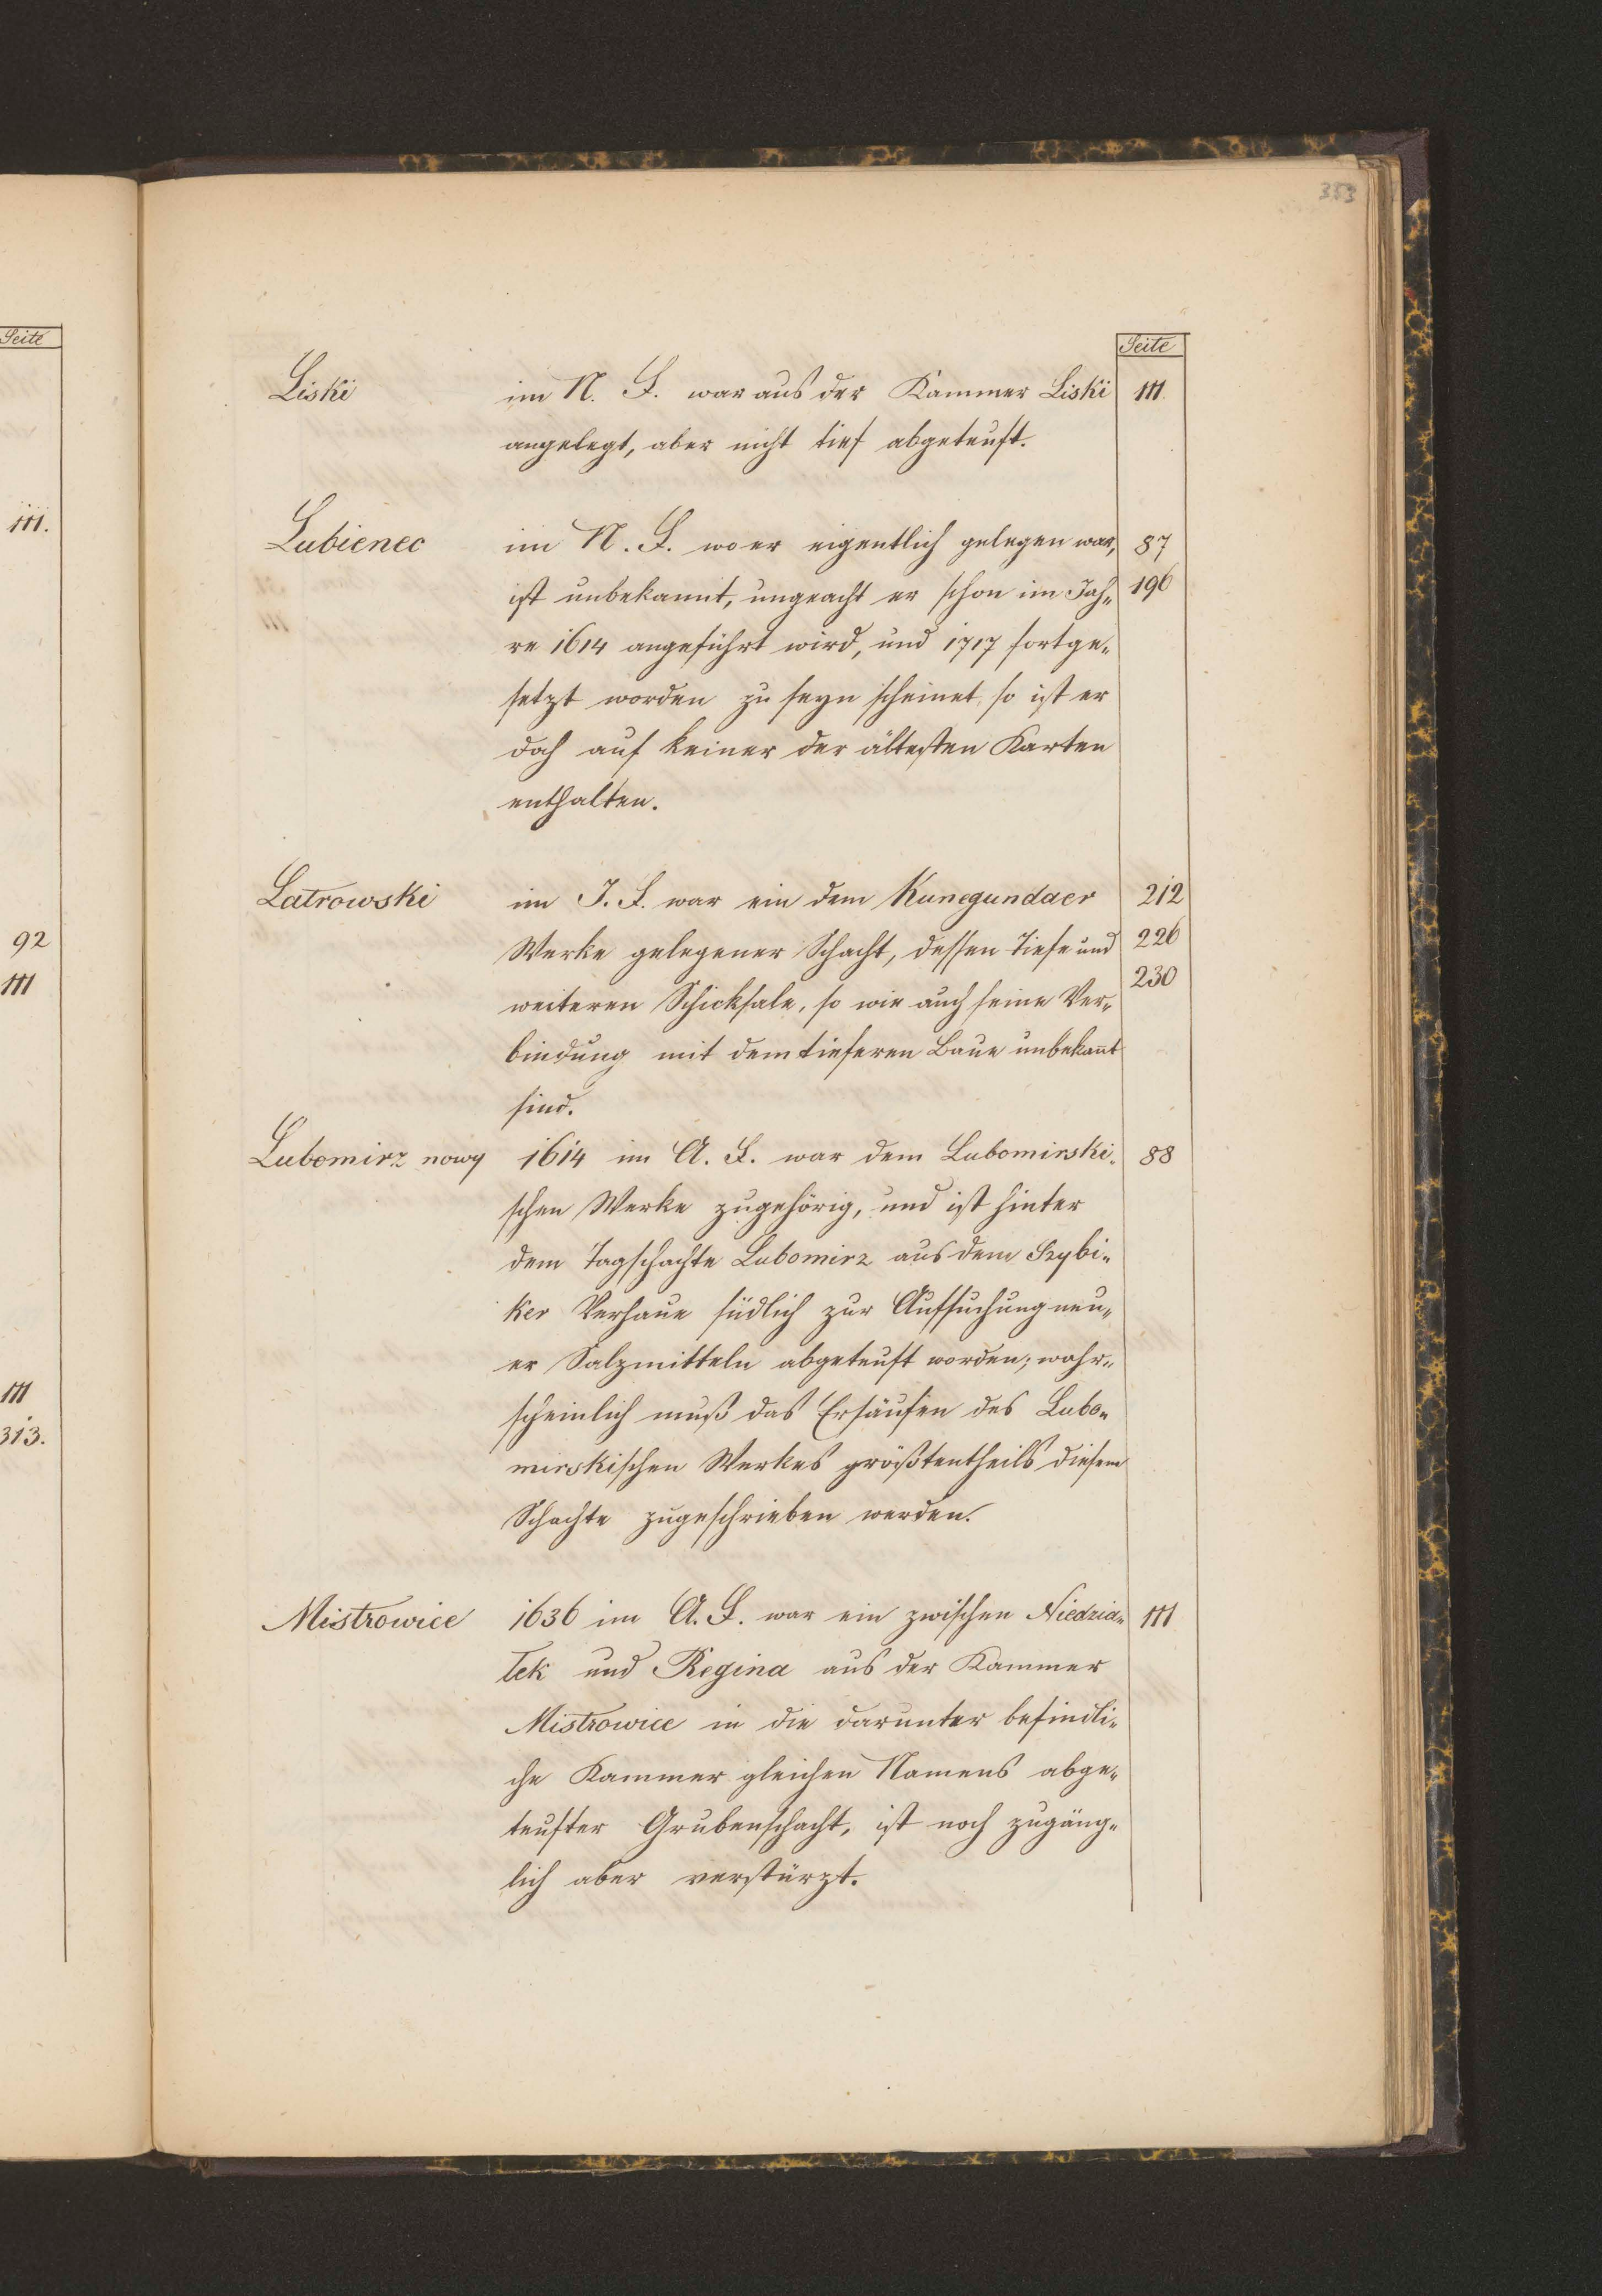 353
Seite
Seite
111.
92
111
111
313.
Liski im N. F. war aus der Kammer Liski 111.
angelegt, aber nicht tief abgeteuft.
Lubienec im N. F. wo er eigentlich gelegen war, 87
ist unbekannt, ungeacht er schon im Jah- 196
re 1614 angeführt wird, und 1717 fortge-
setzt worden zu seyn scheinet, so ist er
doch auf keiner der ältesten Karten
enthalten.
Latrowski im J. F. war ein dem Kunegundaer 212
Werke gelegener Schacht, dessen Tiefe und 226
weiteren Schicksale, so wie auch seine Ver- 230
bindung mit dem tieferen Baue unbekant
sind.
Lubomirz nowy 1614 im A. F. war dem Lubomirski- 88
schen Werke zugehörig, und ist hinter
dem Tagschachte Lubomirz aus dem Szybi-
ker Verhaue südlich zur Aufsuchung neu-
er Salzmitteln abgeteuft worden; wahr-
scheinlich muß das Ersäufen des Lubo-
mirskischen Werkes größtentheils diesem
Schachte zugeschrieben werden.
Mistrowice 1636 im A. F. war ein zwischen Niedzia- 111
lek und Regina aus der Kammer
Mistrowice in die darunter befindli-
che Kammer gleichen Namens abge-
teufter Grubenschacht, ist noch zugäng-
lich aber verstürzt.